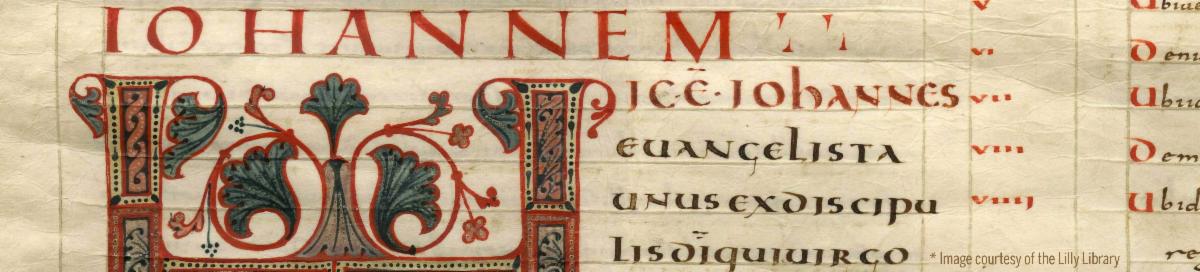 IOHANNEM
H IC·Ē·IOhANNES
EUANGELISTA
UNUS EX DISCIPU
LIS DĪ QUI UIRGO
V
VI
VII
VIII
VIIII
Ubiu
Deni
Ubiu
Dem
Ubid
re
* Image courtesy of the Lilly Library